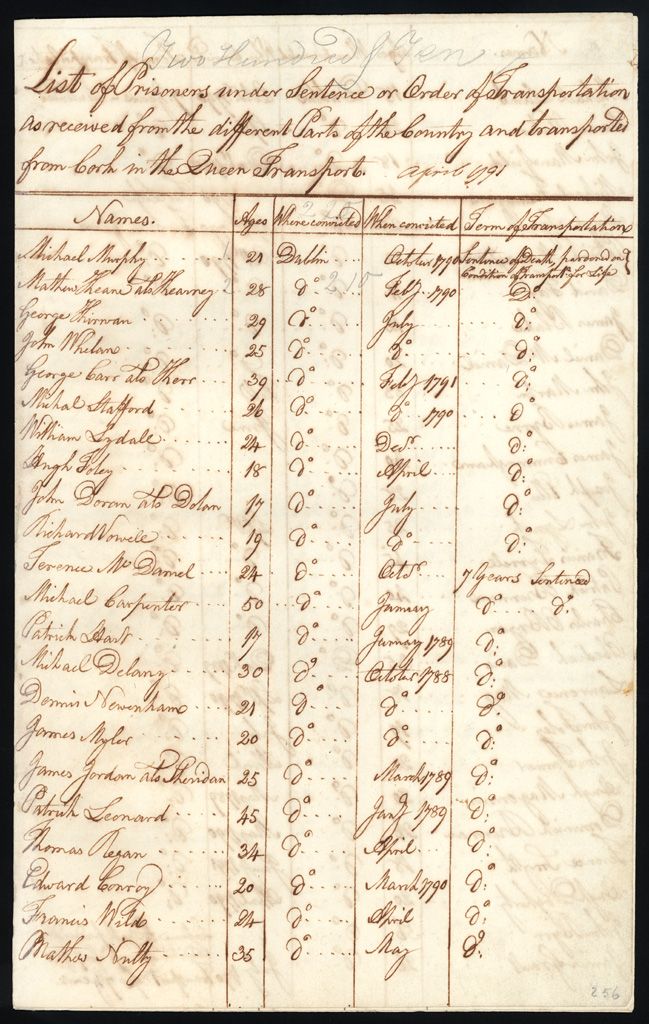 Two Hundred & Ten
List of Prisoners under Sentence or Order of Transportation
as received from the different Parts of the Country and transported
from Cork in the Queen Transport. April 1791
Names. Ages Where convicted When convicted Term of Transportation
Michael Murphy 21 Dublin October 1790 Sentence of Death, pardoned on Condition of Transportn. for Life
Mathew Keane als Kearney 28 do. 210 Feby 1790 Do.
George Kirwan 29 do. July do.
John Whelan 25 do. do. do.
George Carr als Kerr 39 do. Feby 1791 do.
Michal Stafford 26 do. do 1790 do
William Lydale 24 do. Decr. do.
Hugh Foley 18 do. April do.
John Doran als Dolan 17 do. July do.
Richard Vowell 19 do. do. do.
Terence McDaniel 24 do. Octr. 7 Years Sentence
Michael Carpenter 50 do. January do. do.
Patrick Hart 17 do. January 1789 do.
Michael Delany 30 do. October 1788 do.
Dennis Newenham 21 do. do. do.
James Myler 20 do. do. do.
James Jordan als Sheridan 25 do. March 1789 do.
Patrick Leonard 45 do. Jany 1789 do.
Thomas Regan 34 do. April do.
Edward Conroy 20 do. March 1790 do.
Francis Wild 24 do. April do.
Mathew Nulty 35 do. May do.
256